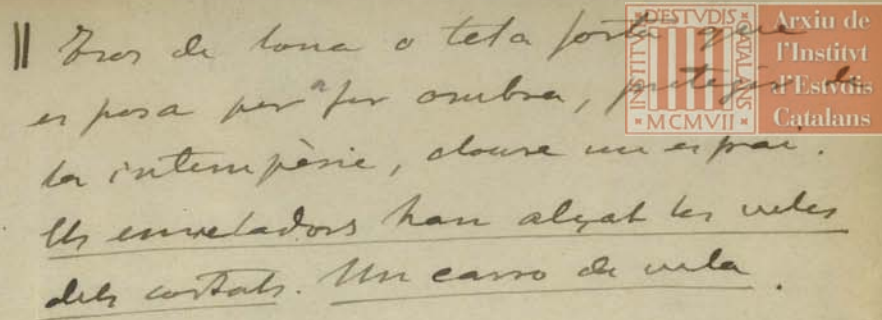 || Tros de lona o tela forta que
es posa per a fer ombra, protegir de
la intempèrie, cloure un espai.
Els enveladors han alçat les veles
dels costats. Un carro de vela.
INSTITVT D'ESTVDIS CATALANS
MCMVII
Arxiu de
l'Institvt
d'Estvdis
Catalans